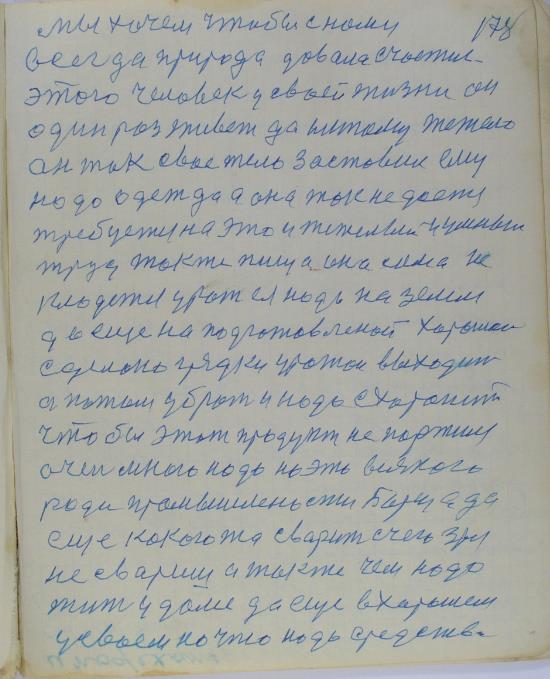 мы хочем чтобы с нами 178
всегда природа довала счастия
этого человек у своей жизни он
один раз живет да и тому тежело
он так свое тело заставил ему
надо одежда а она так не дается
требуется на это и тежелый и умный
труд также пища она сама не
кладется урожая надо на земли
да еще на подготовленой хорошой
сделано грядки урожай выходит
а потом убрать и надо схоронить
чтобы этот продукт не портился
очен много надо на эта всякого
рода промышлености Борща да
еще какого жа сварит с чего зря
не свариш а также чем надо
жит у доме да еще в хорошем
усвоем на что надо средства